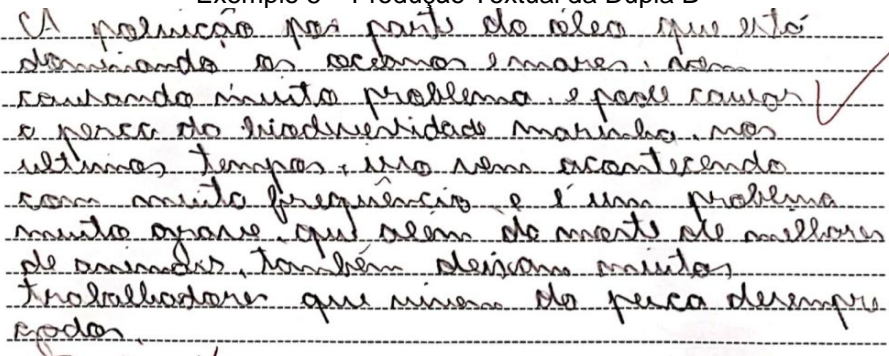 Exemplo 3 – Produção Textual da Dupla B
A poluição por parte do óleo que está
dominando os oceanos e mares, vem
causando muito problema, e pode causar
a perca da biodiversidade marinha, nos
ultimos tempos, isso vem acontecendo
com muita frequência e é um problema
muito grave, que além da morte de milhores
de animais, também deixam muitos
trabalhadores que vivem da pesca desempre
gados.